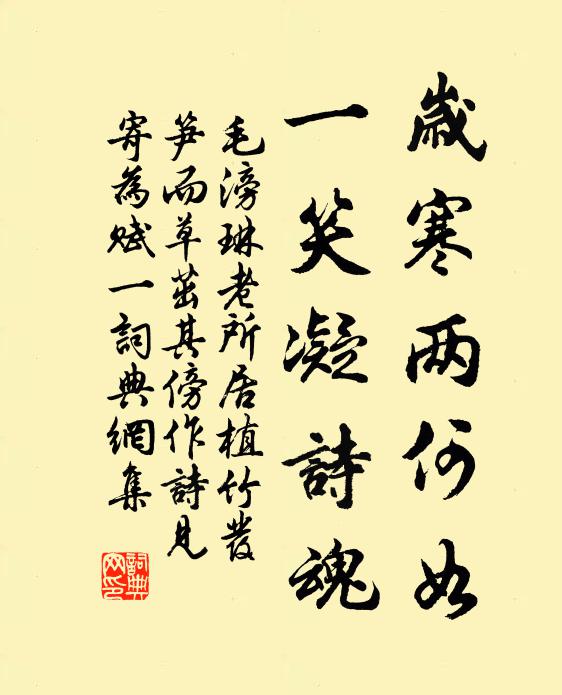 歲寒两何如
一笑凝詩魂
毛滂琳老所居植竹發
笋而草茁其傍作詩見
寄為賦一詞典網集
詞典網印